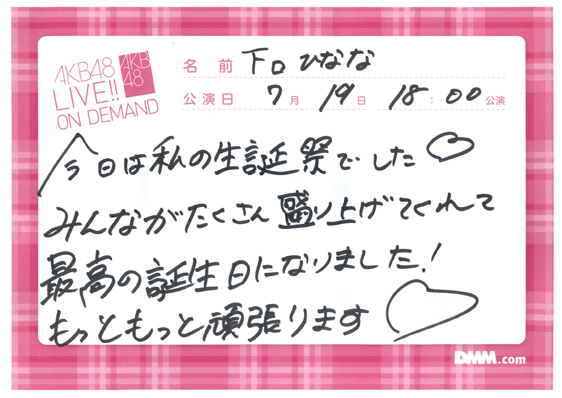 AKB48
LIVE!!
ON DEMAND
AKB
48
名前 下口ひなな
公演日 7月19日 18:00公演
今日は私の生誕祭でした♡
みんながたくさん盛り上げてくれて
最高の誕生日になりました!
もっともっと頑張ります♡
DMM.com